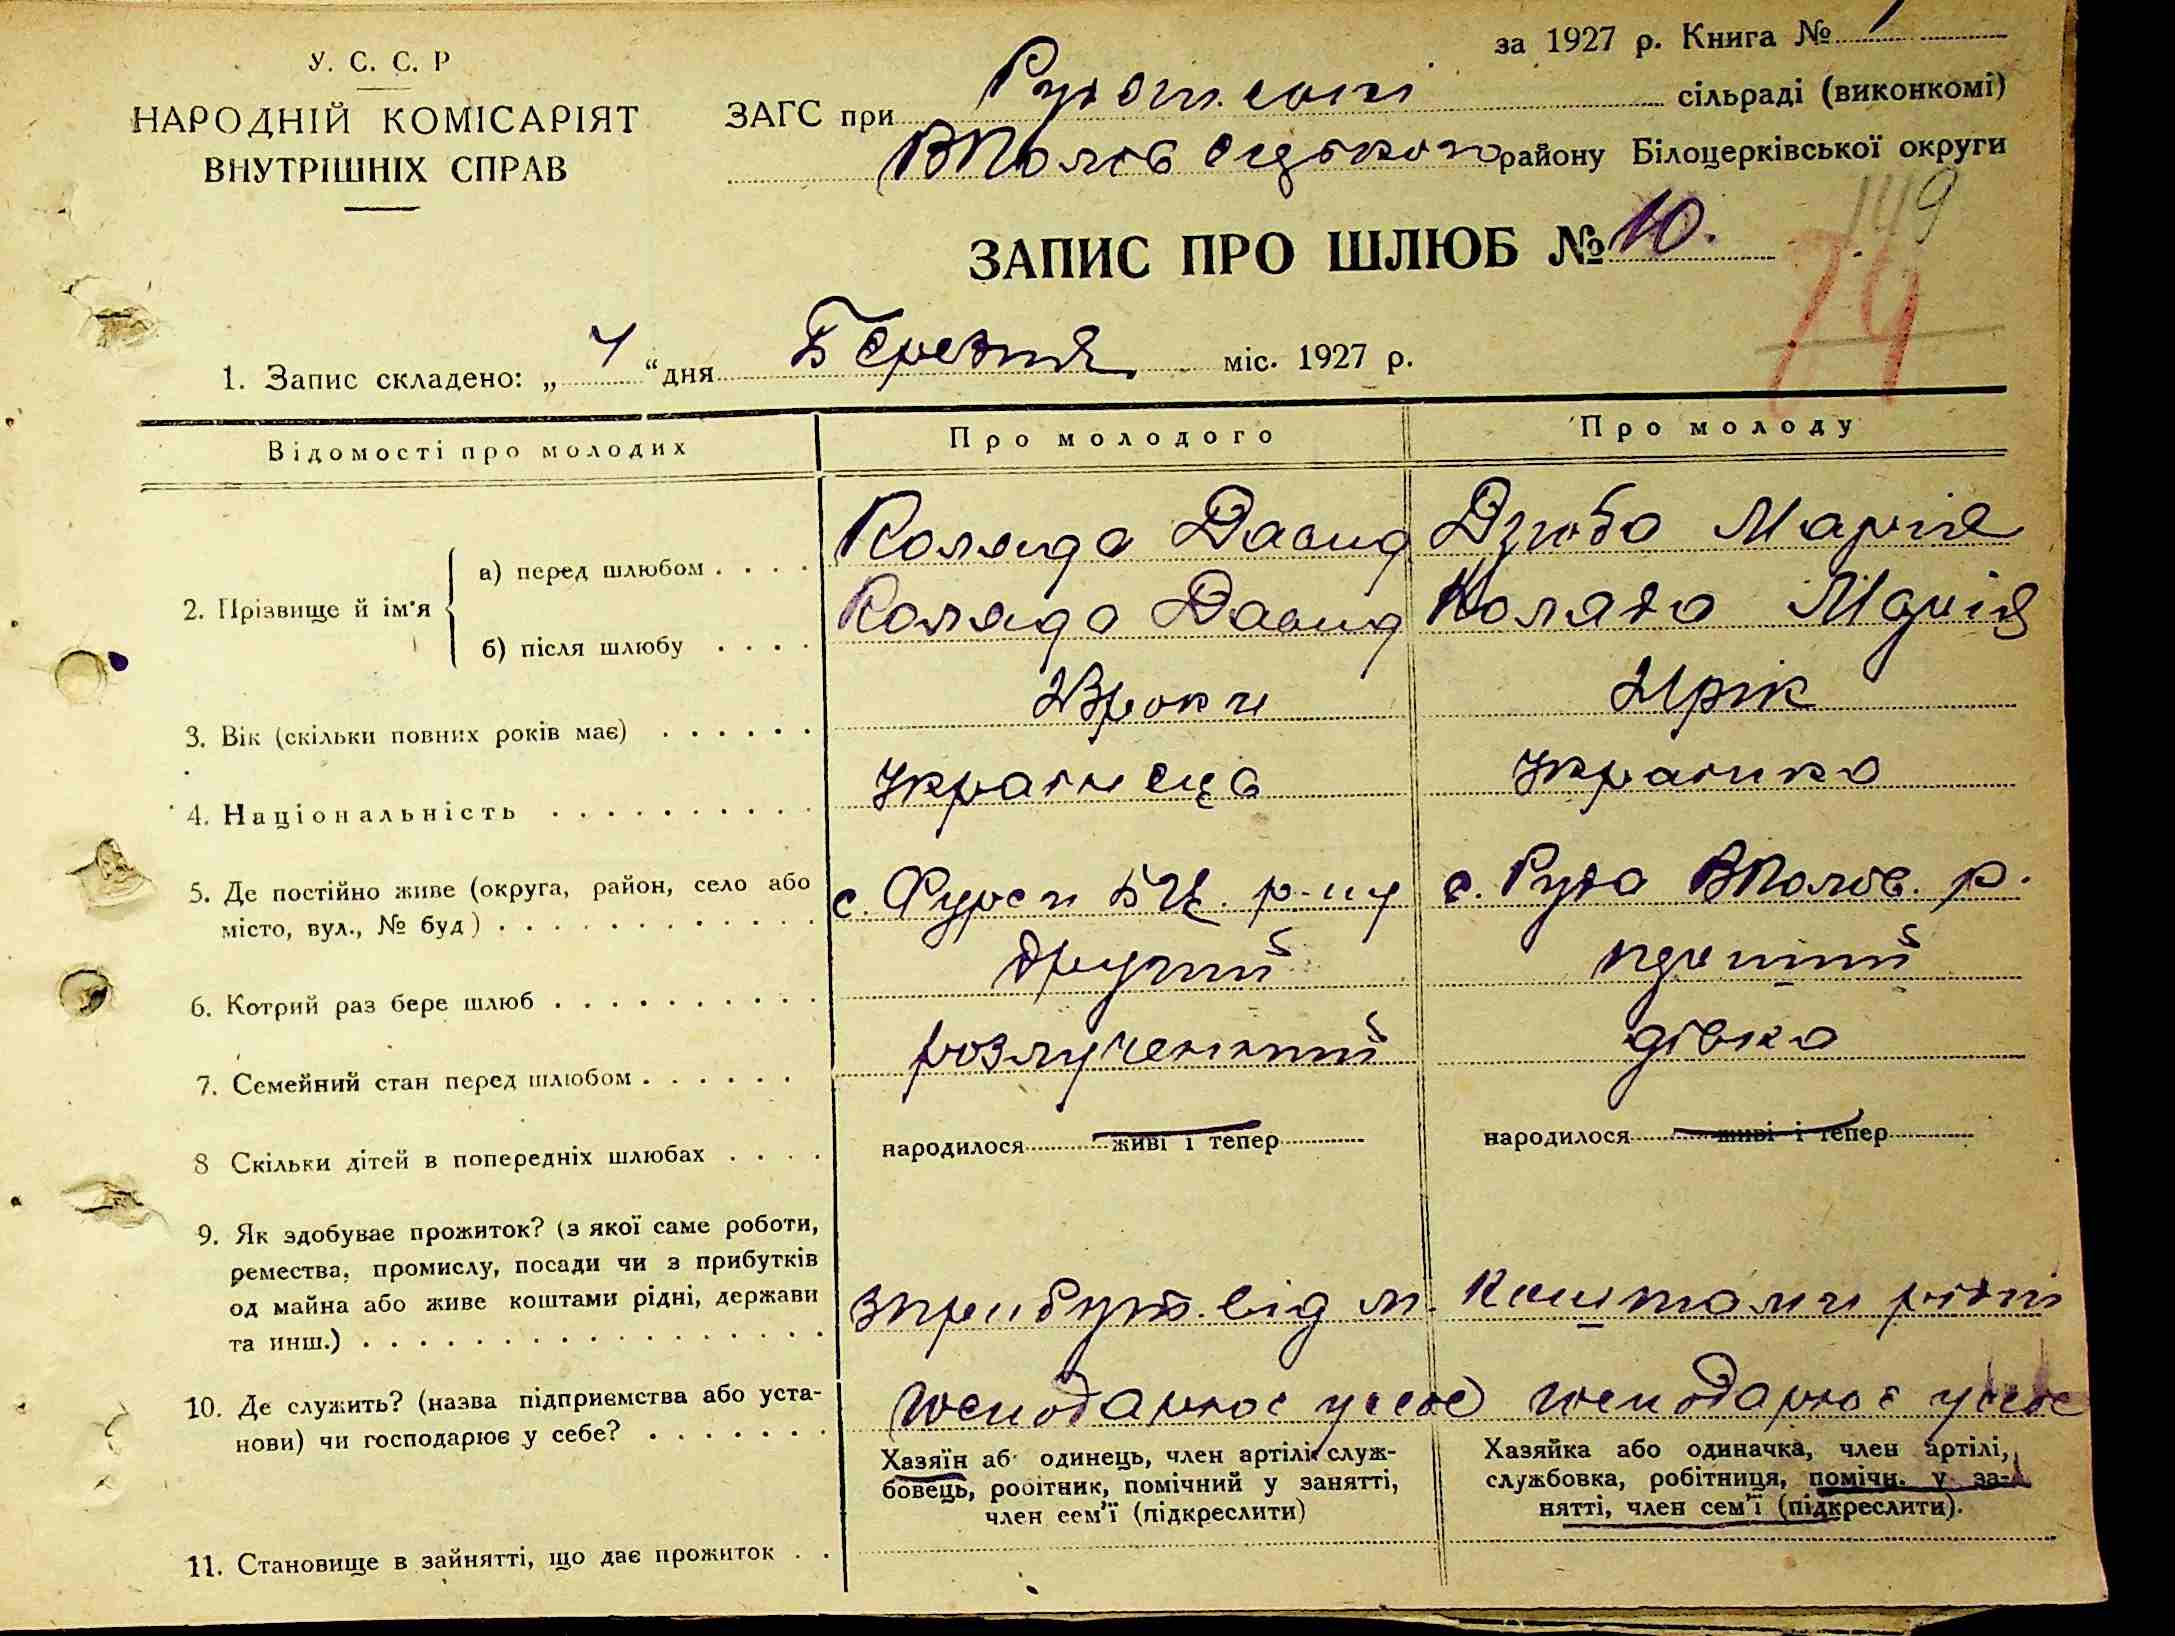 У. С. С. Р
НАРОДНІЙ КОМІСАРІЯТ
ВНУТРІШНІХ СПРАВ
за 1927 р. Книга № 1
ЗАГС при сільраді (виконкомі)
району Білоцерківської округи
149
ЗАПИС ПРО ШЛЮБ № 10.
74
1. Запис складено: „ “ дня Березня міс. 1927 р.
Відомості про молодих Про молодого Про молоду
2. Прізвище й ім'я
а) перед шлюбом . . . . Коляда Давид Дзюба Марія
б) після шлюбу . . . . Коляда Давид Коляда Марія
3. Вік (скільки повних років має) . . . . . . роки рік
4. Національність . . . . . . . . . . Українець Українка
5. Де постійно живе (округа, район, село або
місто, вул., № буд) . . . . . . . . . . . . с. Фурси БЦ. р-ну с. Руда ВПолов. р.
6. Котрий раз бере шлюб . . . . . . . . . . другий перший
7. Семейний стан перед шлюбом . . . . . . розлученний дівка
8 Скільки дітей в попередніх шлюбах . . . . народилося живі і тепер народилося живі і тепер
9. Як здобуває прожиток? (з якої саме роботи,
ремества, промислу, посади чи з прибутків
од майна або живе коштами рідні, держави
та инш.) . . . . . . . . . . . . . . . . . з прибутк. від м. Коштами рідні
10. Де служить? (назва підприємства або уста-
нови) чи господарює у себе? . . . . . . . господарює у себе господарює у себе
Хазяїн аб одинець, член артілі служ-
бовець, робітник, помічний у занятті,
член сем'ї (підкреслити)
Хазяйка або одиначка, член артілі,
службовка, робітниця, помічн. у за-
нятті, член сем'ї (підкреслити).
11. Становище в зайнятті, що дає прожиток . .